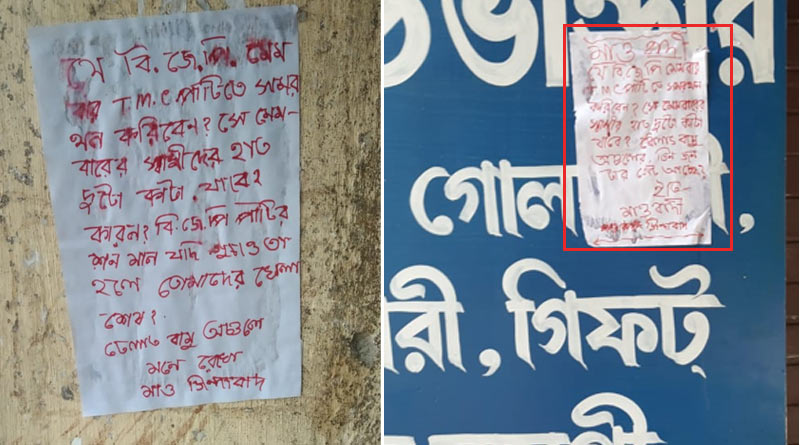 যে বি.জে.পি. মেম
বার T.M.C পার্টিতে সমর
থন করিবেন? সে মেম-
বারের স্বামীদের হাত
দুটো কাটা যাবে?
কারন? বি:জে:পি পার্টির
মান যদি
হলে তোমাদের খেলা
শেষ?
বাবু অঞ্চলে
মনে রেখো
মাও জিন্দাবাদ
ভান্ডার
মাও বাদী
যে বি জে পি মেমবার
T.M.C পার্টি কে সমরথন
করিবেন? সে মেমবারের
স্বামীর হাত দুটো কাটা
যাবে? বাবু
অঞ্চলের তিন জন
ইতি-
মাও বাদী
জিন্দাবাদ
গোলা
রী, গিফট্